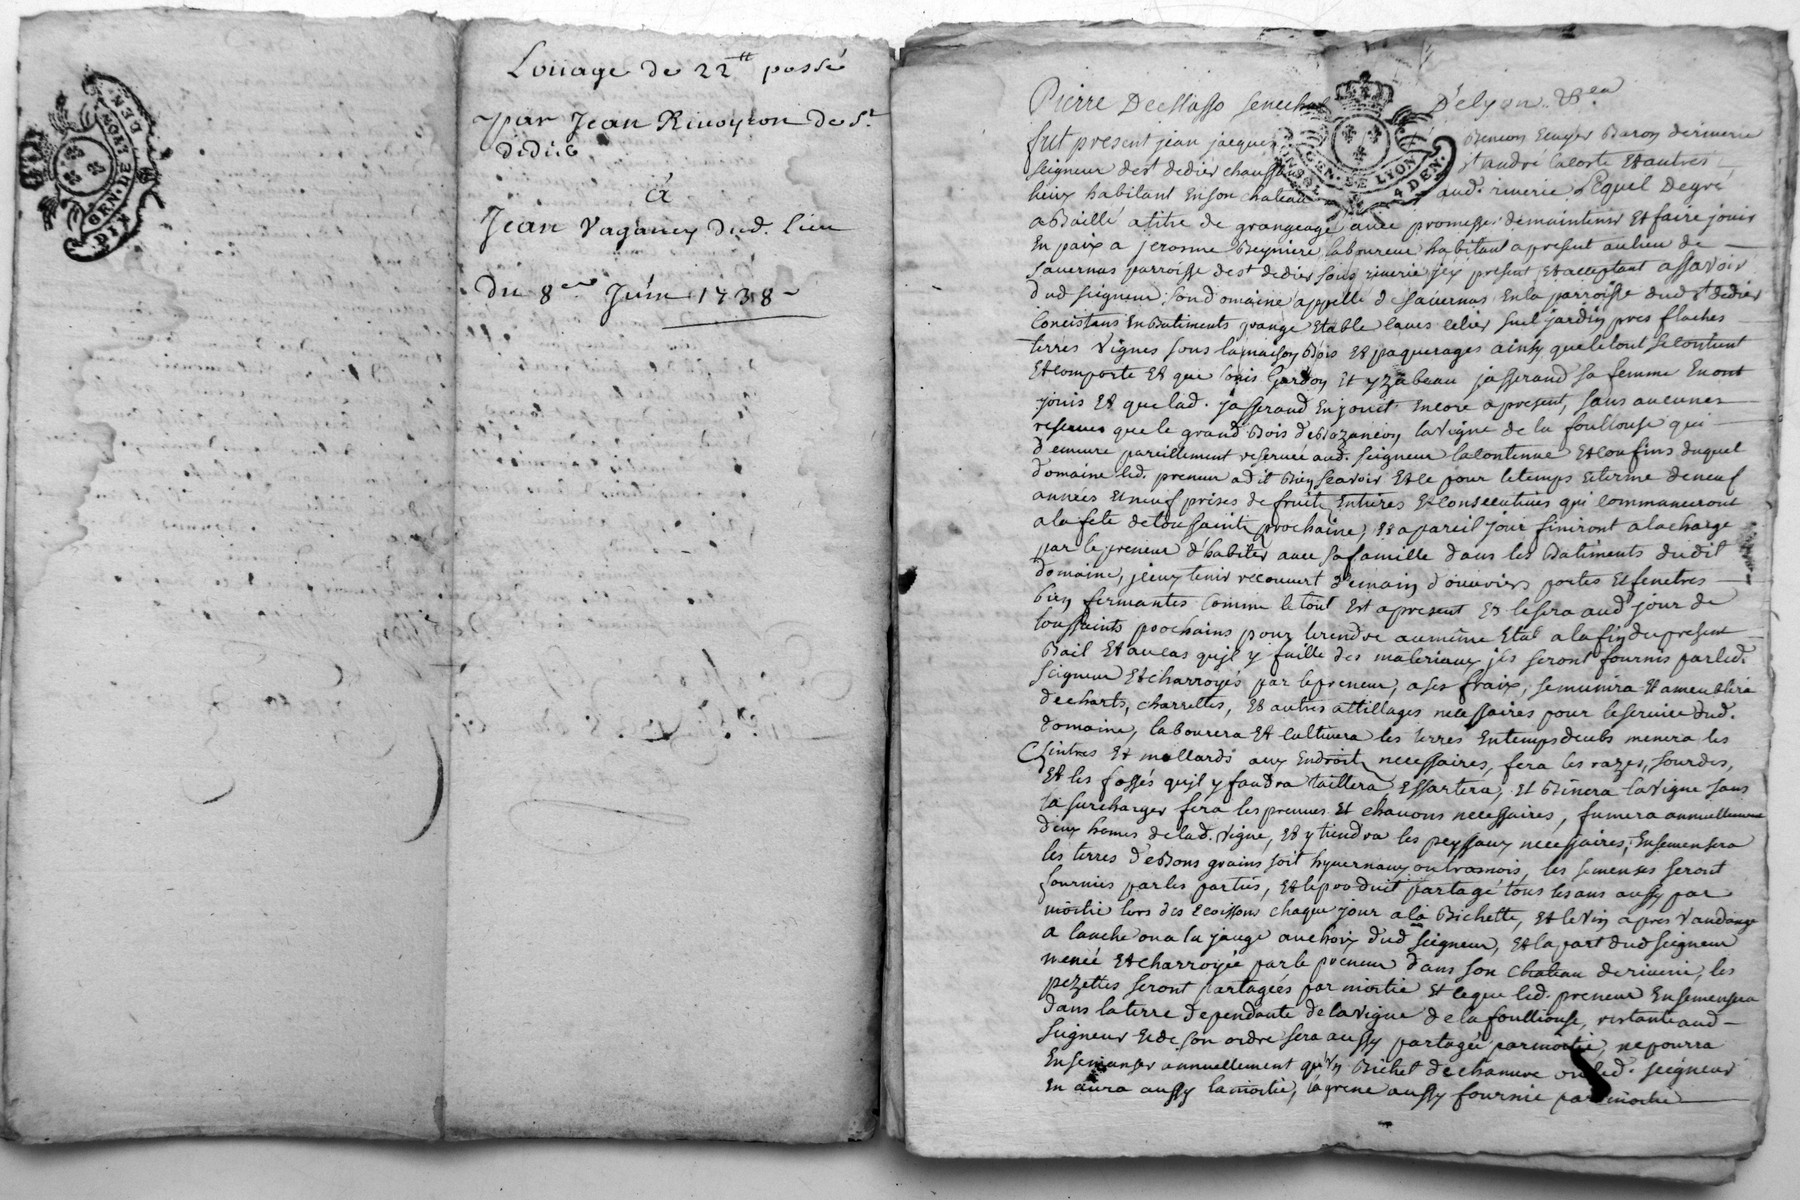 Louage de 22tt passé
par Jean Rivoyron de St
didié
a
Jean Vaganey dud. lieu
du 8e Juin 1738
DEN.
GEN. DE LYON
DIX
GEN. DE LYON
4 DEN.
Pierre De Masso Senechal Delyon
fut present jean jacques Beneon Ecuyer Baron deriverie
seigneur de st dedier chaussan st andré lacoste Et autres
lieux habitant En son chateau aud. riverie Lequel Degré
a Baillé a titre de grangeage avec promesse demaintenir Et faire jouir
En paix a jerosme Beyniere laboureur habitant a present aulieu de
Savernas parroisse de st dedier sous riverie jcy present Et acceptant assavoir
dud seigneur son domaine appellé de Savernas En la parroisse dud st dedier
Concistant En Batiments grange Etable caves celier suel jardin pres flaches
terres vignes sous la maison Bois Et paquerages ainsy que le tout se contient
Et comporte Et que Louis Gardon Et yzabeau jasserand sa femme En ont
jouis Et que lad. jasserand En jouit Encore apresent, sans aucunes
reserves que le grand Bois de Bozancon la vigne de la foullouse qui
demeure pareillement reservée aud. seigneur la contenue Et confins duquel
domaine led. preneur a dit Bien scavoir Et ce pour le temps Et terme de neuf
années Et neuf prises de fruits Entieres Et consecutives qui commanceront
a la fete de toussaints prochaine, Et a pareil jour finiront a la charge
par le preneur d'habiter avec sa famille dans les Batiments dudit
domaine, jceux tenir recouvert de main d'ouvriers portes Et fenetres
bien fermantes comme le tout Est apresent Et le sera aud. jour de
toussaints prochains pour le rendre au même Etat a la fin du present
Bail Et au cas qu'jl y faille des materiaux jls seront fournis par led.
seigneur Et charroyés par le preneur, a ses fraix, se munira Et ameublera
de charts, charrettes, Et autres attillages necessaires pour le service dud.
domaine, labourera Et cultivera les terres En temps deubs menera les
Cheintres Et mollards aux Endroits necessaires, fera les razes, sourdes,
Et les fossés qu'jl y faudra taillera Essartera, Et Binera la vigne sans
la surcharger fera les preuves Et chavons necessaires, fumera annuellement
deux homes de lad. vigne, Et y tiendra les peyssaux necessaires; Ensemensera
les terres de Bons grains soit hyvernaux ou tramois, les semenses seront
fournies par les parties, Et le produit partagé tous les ans aussy par
moitié lors des Ecoissons chaque jour a la Bichette, Et le vin apres vandange
a l'anche ou a la jauge au choix dud seigneur, Et la part dud seigneur
menée Et charroyée par le preneur dans son chateau deriverie, les
pezettes seront partagées par moitié Et ce que led. preneur Ensemensera
dans la terre dependante de la vigne de la foullouse, restante aud
seigneur Et de son ordre sera aussy partagée par moitié, ne pourra
Ensemenser annuellement qu'un Bichet de chanvre ou led. seigneur
En aura aussy la moitié, la grene aussy fournie par moitié